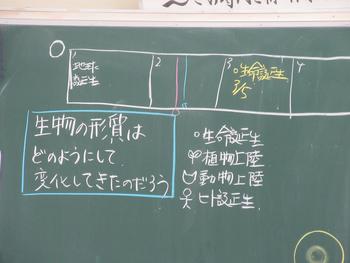 地球
誕生
2
3
○生命誕生
3/5
4
生物の形質は
どのようにして
変化してきたのだろう
○生命誕生
植物上陸
動物上陸
ヒト誕生